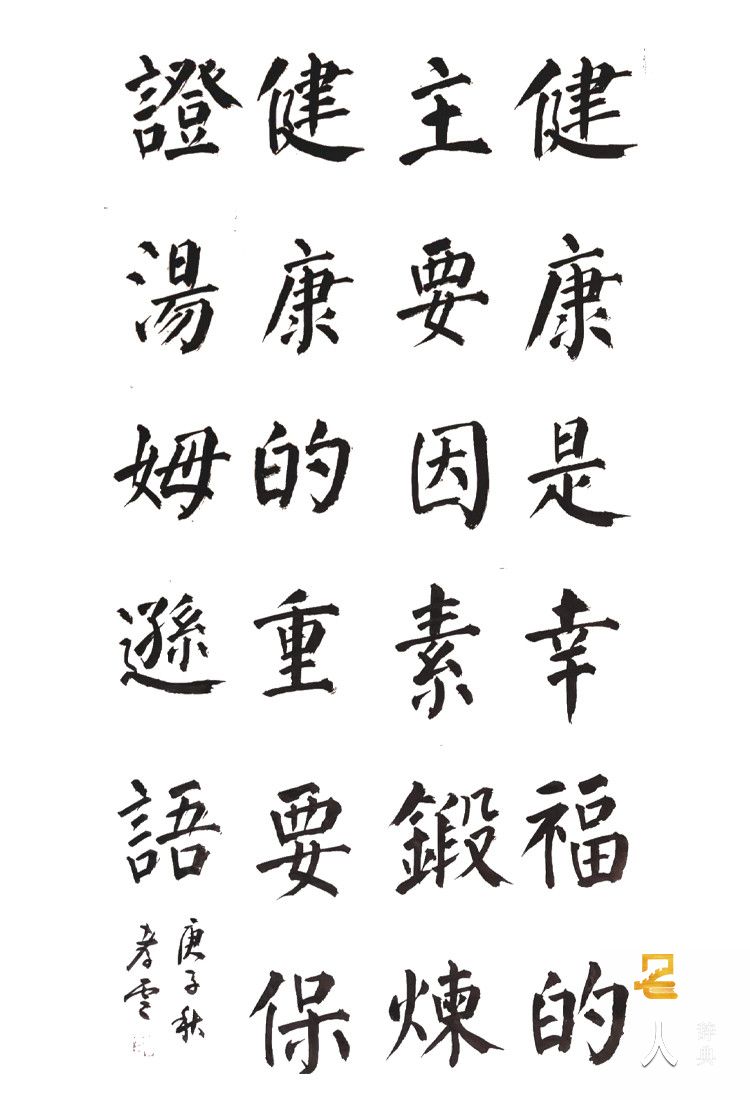 健康是幸福的
主要因素鍛煉
健康的重要保
證湯姆遜語
庚子秋
孝雲
名人
辞典